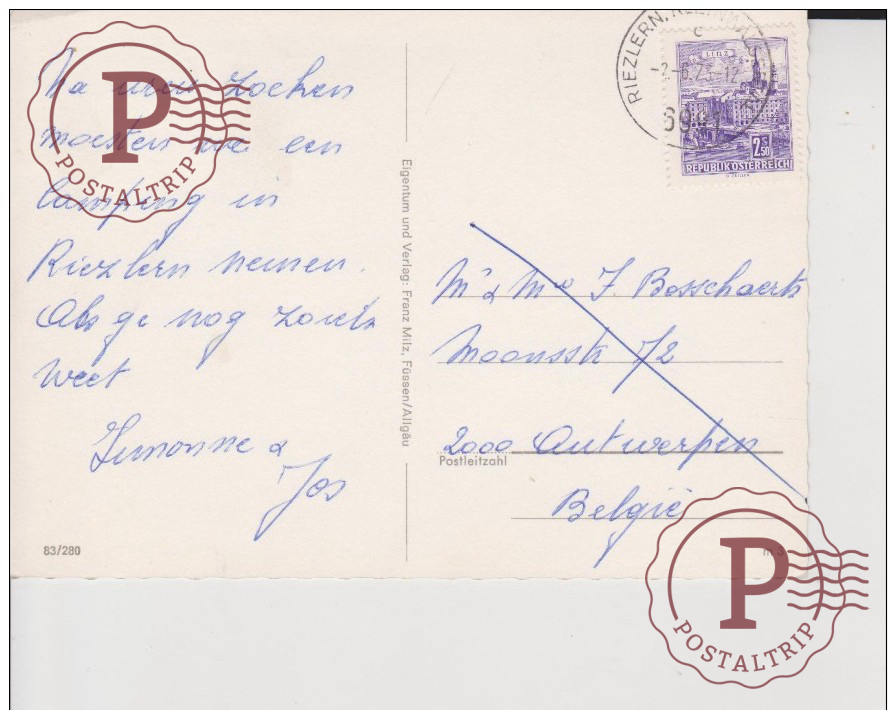 Na uren zoeken
moesten we een
camping in
Riezlern nemen.
Als ge nog zoiets
weet
Simonne &
Jos
83/280
Eigentum und Verlag: Franz Milz, Füssen/Allgäu
RIEZLERN,
-2.-6.73-12
LINZ
2 S 50
REPUBLIK ÖSTERREICH
Mr & Mw J. Bosschaerts
72
2000 Antwerpen
Postleitzahl
België
P
POSTALTRIP
P
POSTALTRIP